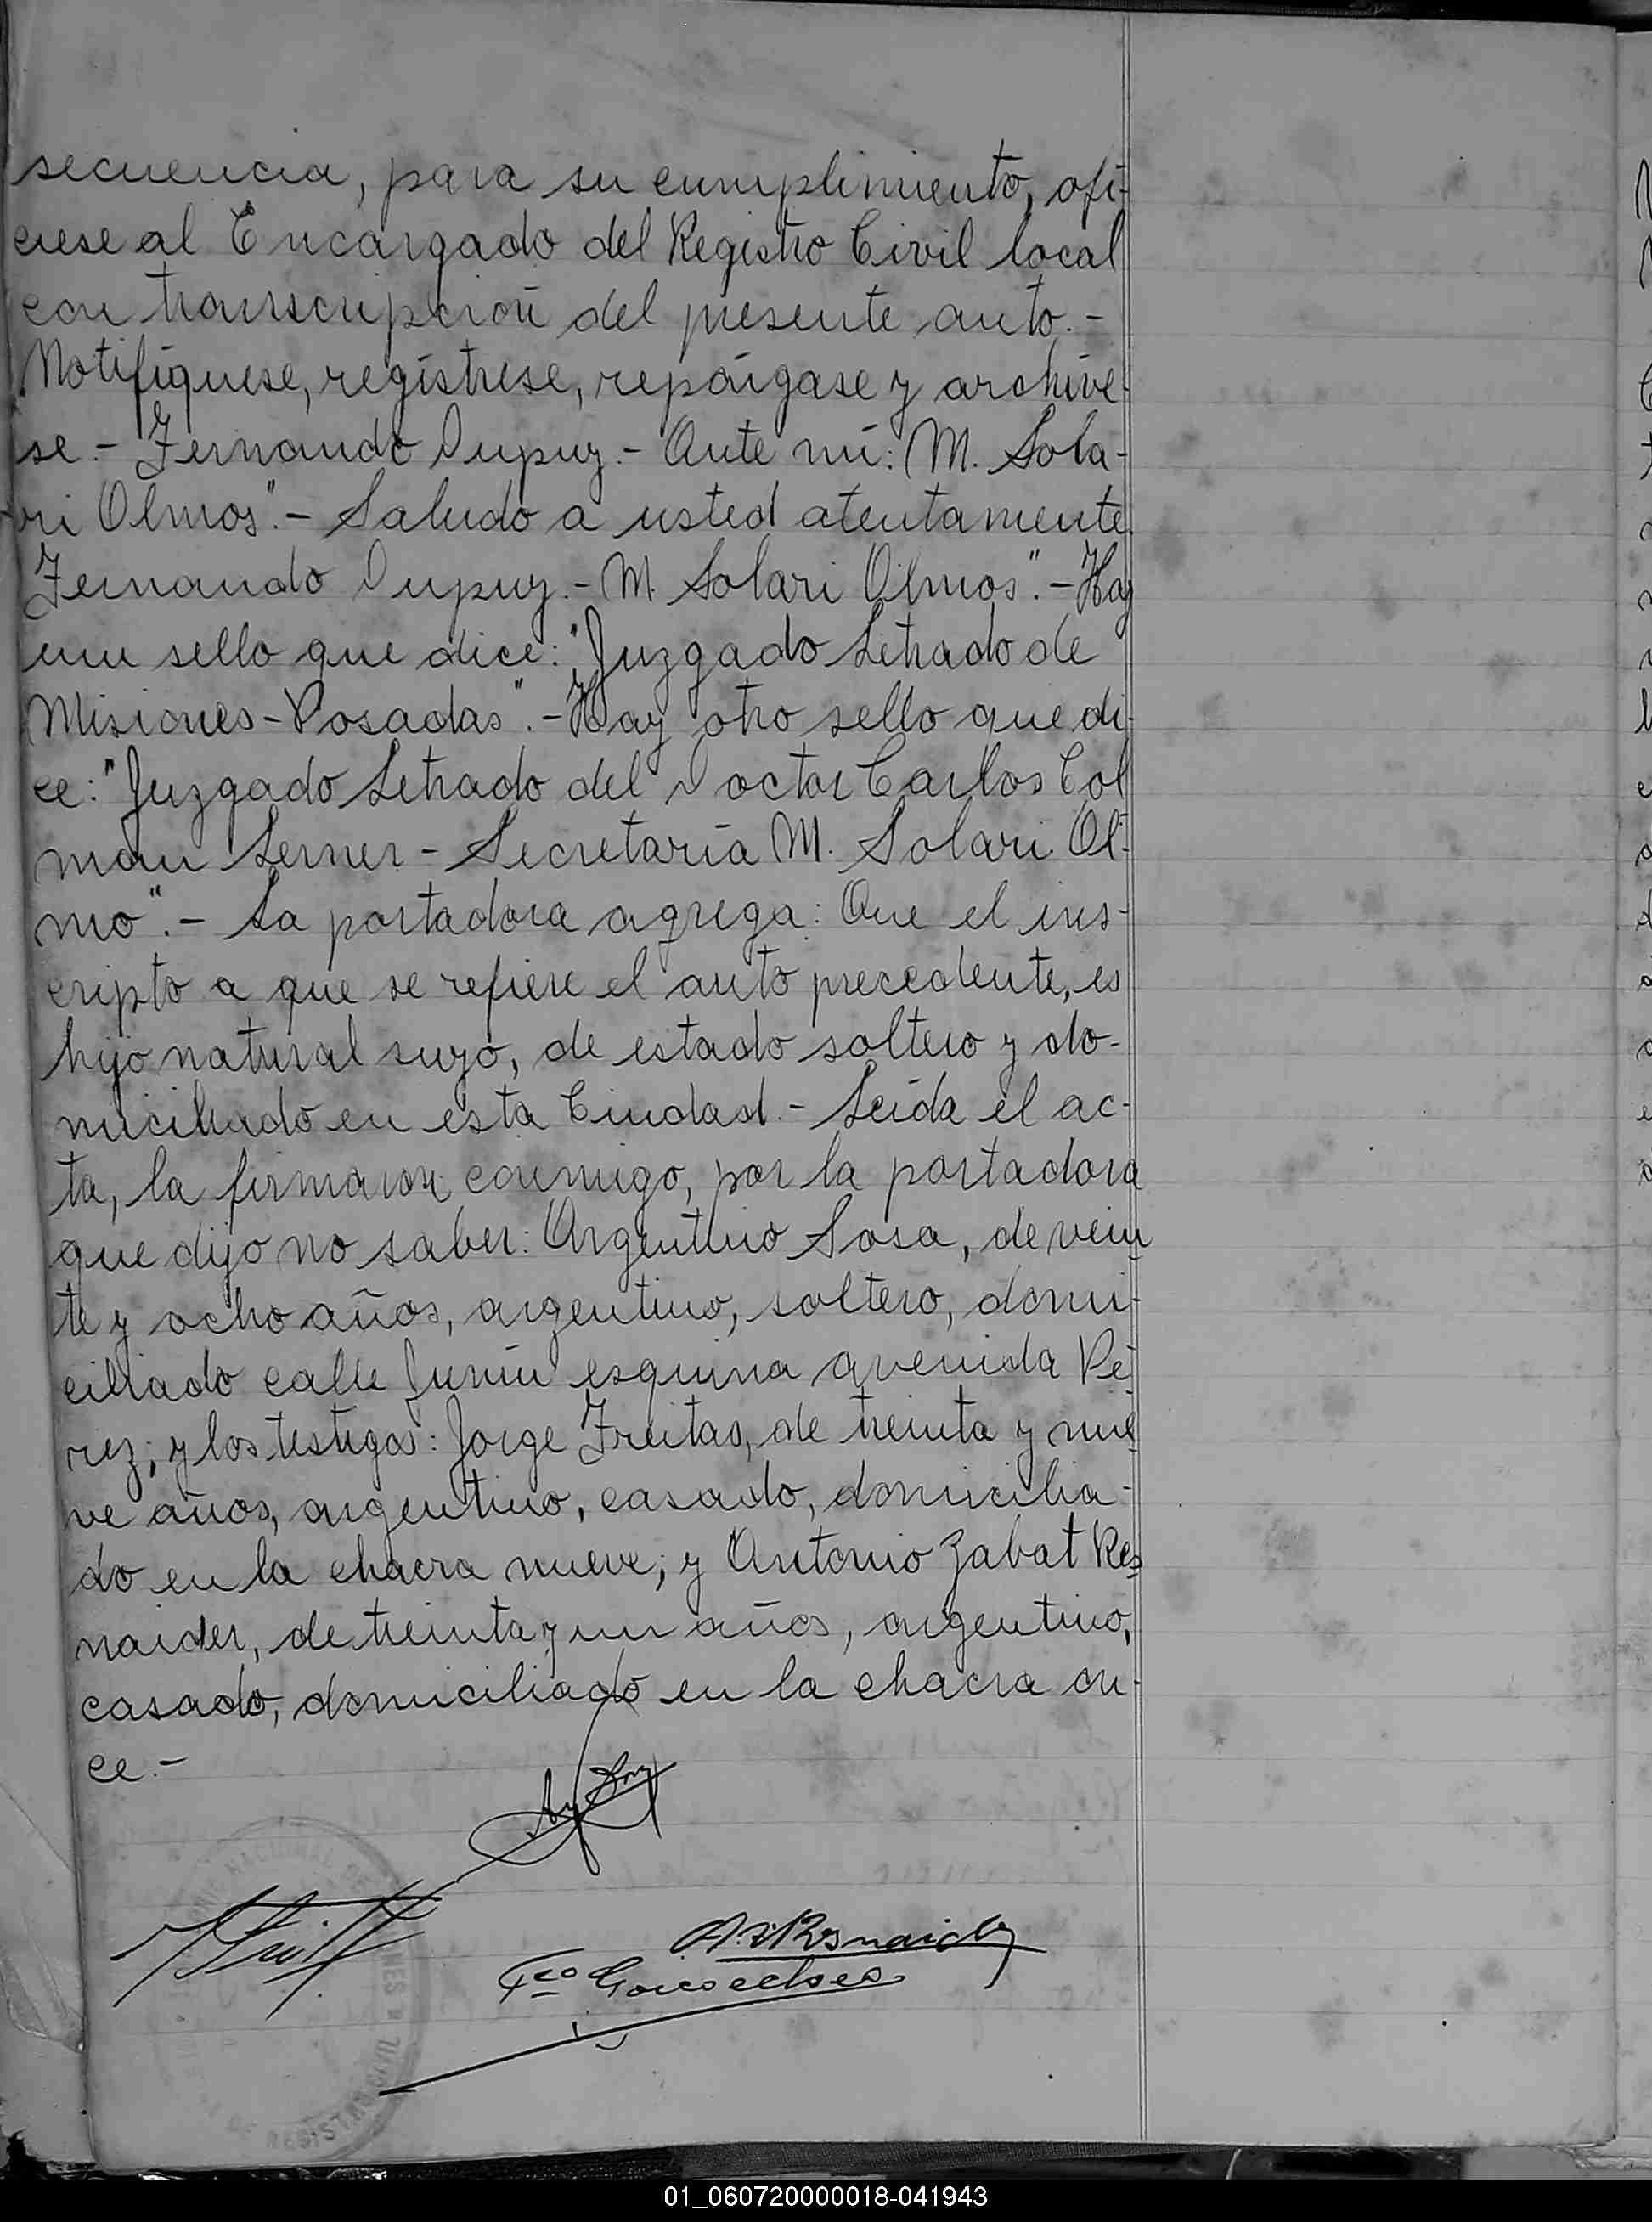 secuencia, para su cumplimiento, ofí-
ciese al Encargado del Registro Civil local
con transcripción del presente auto.-
Notifíquese, regístrese, repóngase y archíve-
se.- Fernando Dupuy.- Ante mí: M. Sola-
ri Olmos".- Saludo a usted atentamente
Fernando Dupuy.- M. Solari Olmos".- Hay
un sello que dice: "Juzgado Letrado de
Misiones-Posadas".- Hay otro sello que di-
ce: "Juzgado Letrado del Doctor Carlos Col
man Lerner - Secretaría M. Solari Ol-
mo".- La portadora agrega: Que el ins-
cripto a que se refiere el auto precedente, es
hijo natural suyo, de estado soltero y do-
miciliado en esta Ciudad.- Leída el ac-
ta, la firmaron conmigo, por la portadora
que dijo no saber: Argentino Sosa, de vein
te y ocho años, argentino, soltero, domi-
ciliado calle Junín esquina avenida Pé-
rez; y los testigos: Jorge Freitas, de treinta y nue
ve años, argentino, casado, domicilia-
do en la chacra nueve; y Antonio Zabat Res
naider, de treinta y un años, argentino,
casado, domiciliado en la chacra on-
ce.-
REGISTRO
01_060720000018-041943